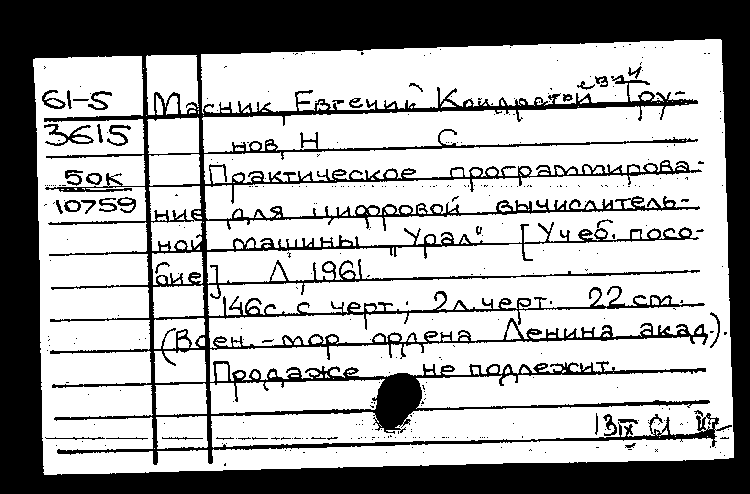 61-5 Масник, Евгений Кондратьевич Тру-
3615 нов, Н С
50к Практическое программирова-
10759 ние для цифровой вычислитель-
ной машины „Урал". [Учеб. посо-
бие]. Л, 1961.
146с. с черт.; 2л. черт. 22 cm.
(Воен.-мор. ордена Ленина акад.).
Продаже не подлежит.
13 IX 61